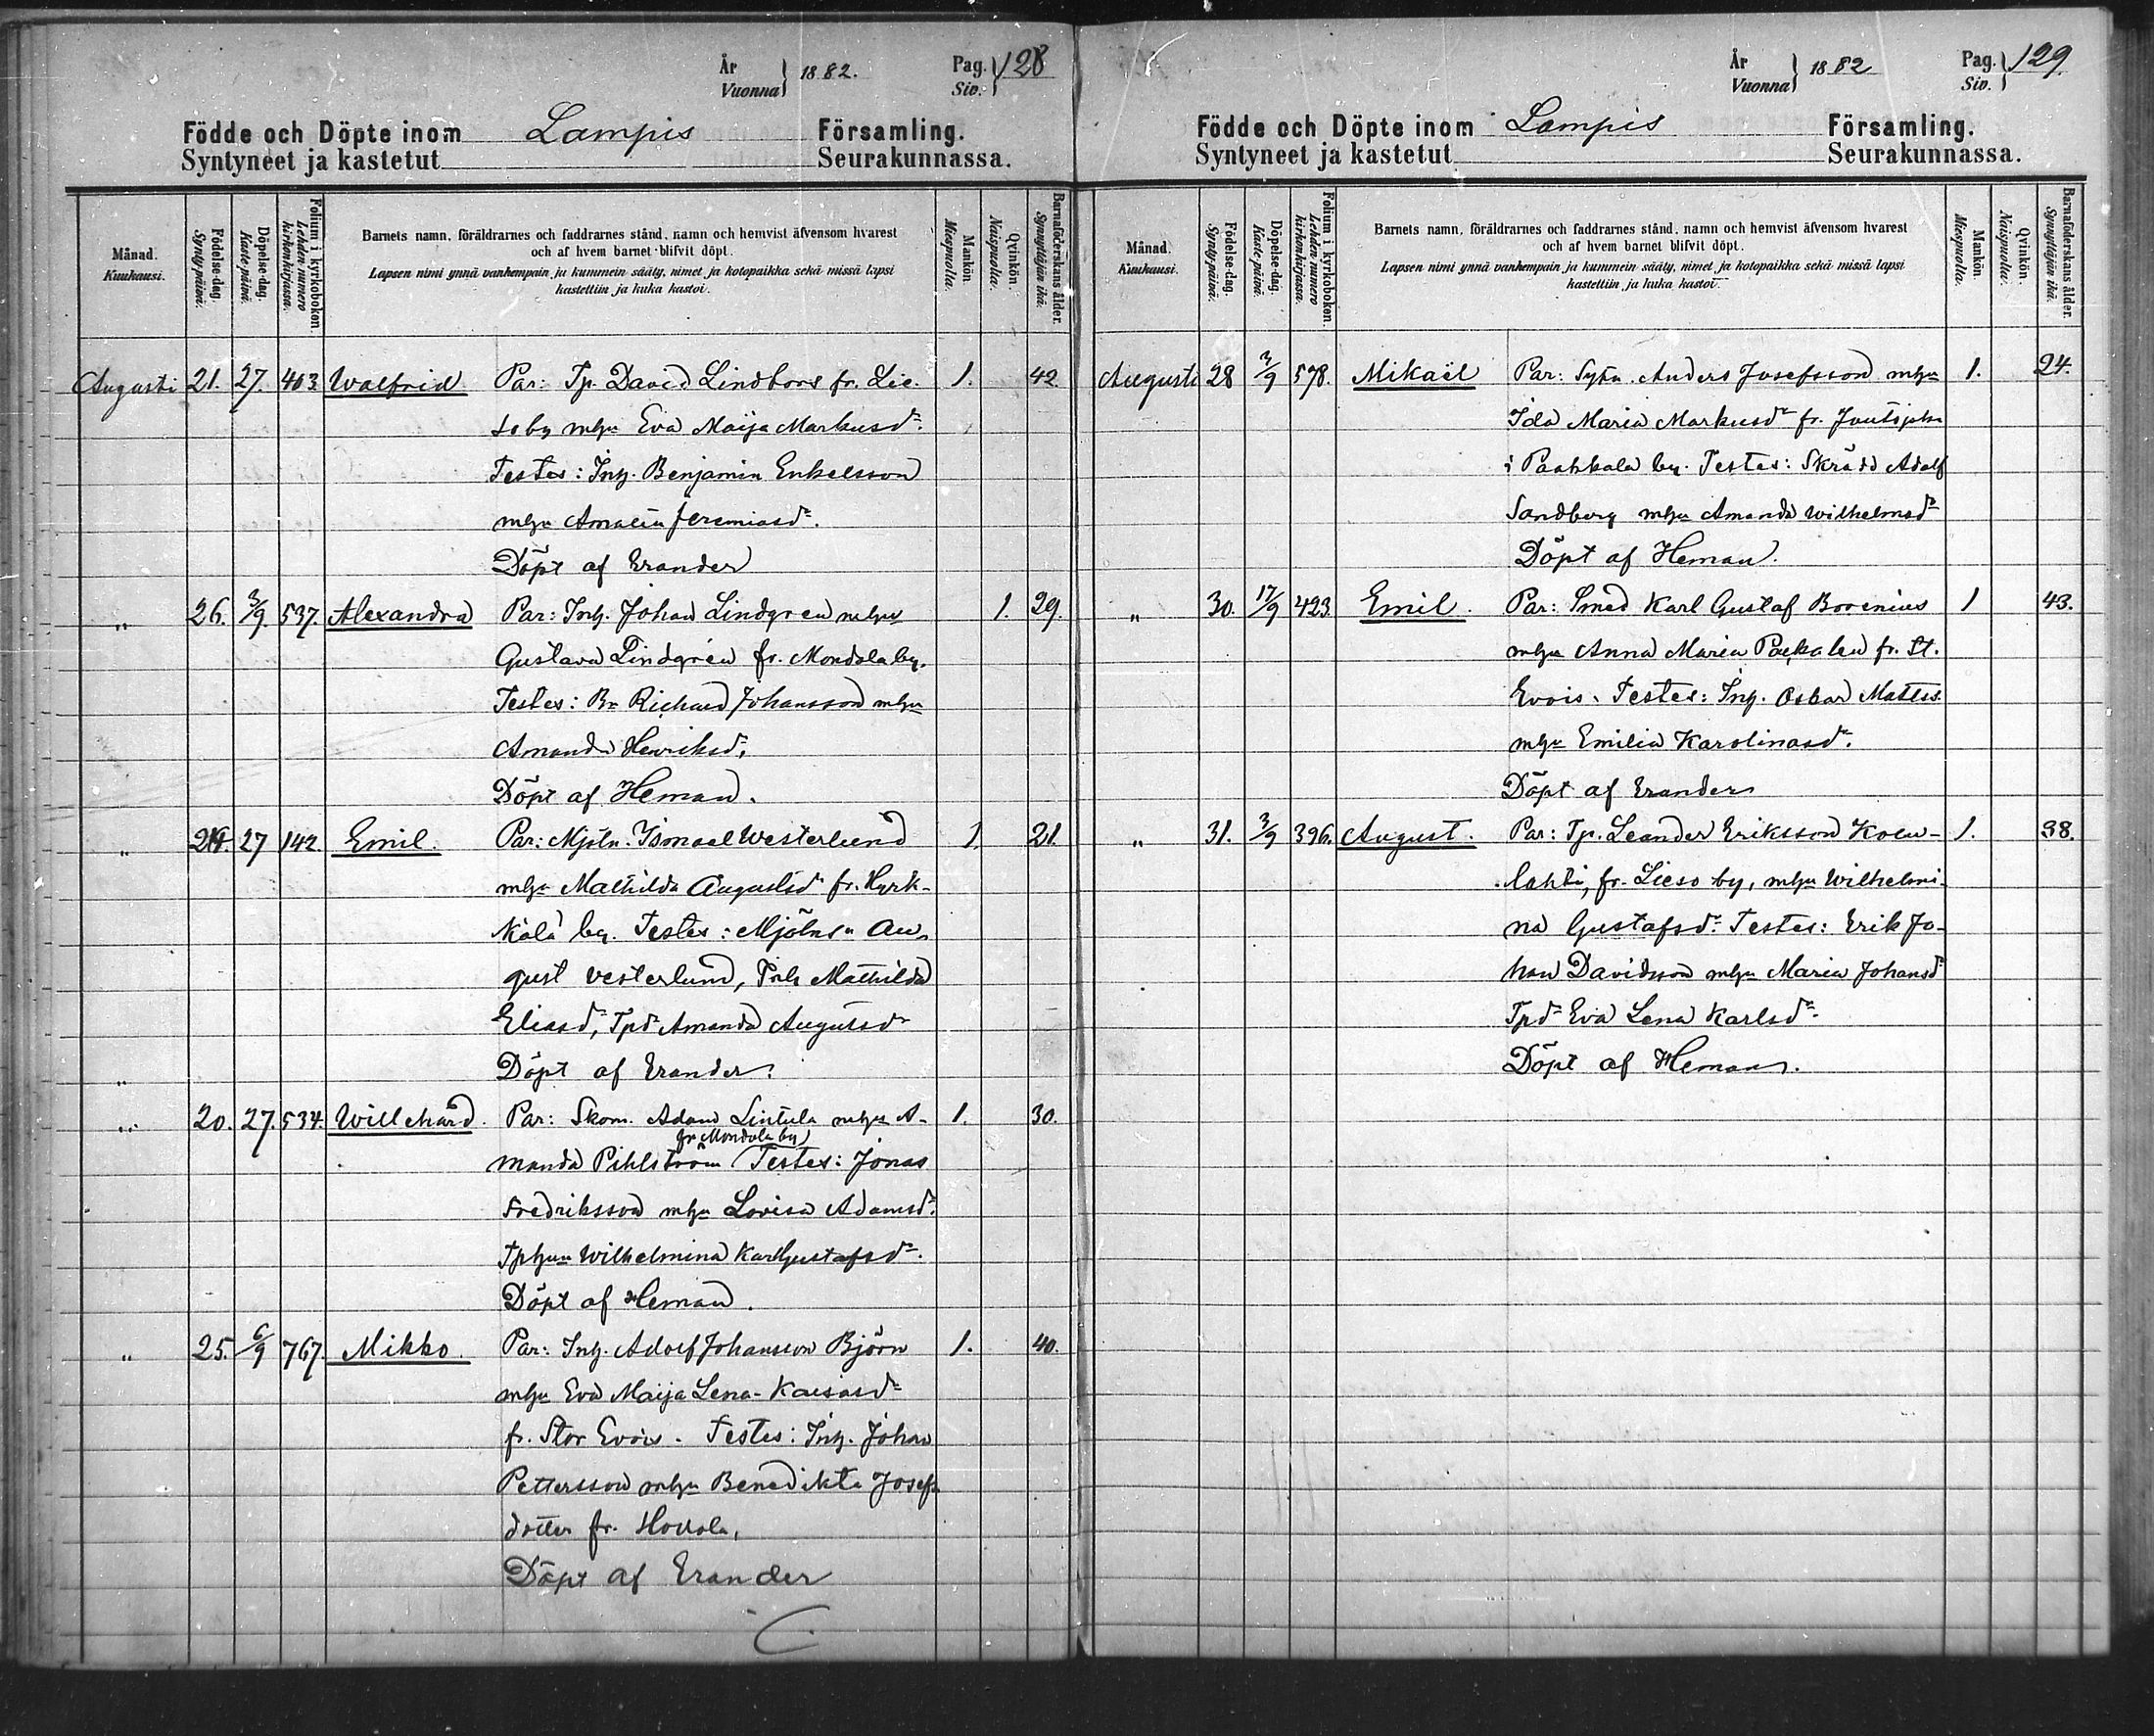 År
Vuonna } 1882.
Pag.
Siv. } 128
Födde och Döpte inom Lampis Församling.
Syntyneet ja kastetut Seurakunnassa.
Månad.
Kuukausi.
Födelse-dag.
Synty-päivä.
Döpelse-dag.
Kaste-päivä.
Folium i kyrkoboken.
Lehden numero kirkonkirjassa.
Barnets namn, föräldrarnes och faddrarnes stånd, namn och hemvist äfvensom hvarest
och af hvem barnet blifvit döpt.
Lapsen nimi ynnä vanhempain ja kummein sääty, nimet ja kotopaikka sekä missä lapsi
kastettiin ja kuka kastoi.
Mankön.
Miespuolia.
Qvinkön.
Naispuolia.
Barnaföderskans ålder.
Synnyttäjän ikä.
Augusti 21. 27. 403 Walfrid Par: Tp. David Lindfors fr. Lie- 1. 42
so by mhu Eva Maija Markusdr.
Testes: Inh. Benjamin Enkelsson
mhu Amalia Jeremiasdr.
Döpt af Erander
„ 26. 3/9. 537. Alexandra Par: Inh. Johan Lindgren mhu 1. 29.
Gustava Lindgren fr. Mondola by.
Testes: Br. Richard Johansson mhu
Amanda Henriksdr.
Döpt af Heman.
„ 27 142 Emil. Par: Mjöln. Ismael Westerlund 1. 21.
mhu Mathilda Augustsdr fr. Hyrk-
kälä by. Testes: Mjölns n Au-
gust Vesterlund, Inh Mathilda
Eliasdr, Tpdr Amanda Augustsdr
„ Döpt af Erander.
„ 20. 27. 534. Willehard. Par: Skom. Adam Lintula mhu A- 1. 30.
fr. Mondola by
manda Pihlström Testes: Jonas
Fredriksson mhu Lovisa Adamsdr.
Tphun Wilhelmina Karl Gustafsdr.
Döpt af Heman.
„ 25. 6/9 767. Mikko. Par: Inh. Adolf Johansson Björn 1. 40.
mhu Eva Maija Lena-Kaisasdr
fr. Stor Evois. Testes: Inh. Johan
Pettersson mhu Benedikta Josefs
dotter fr. Hollola.
Döpt af Erander
År
Vuonna } 1882
Pag.
Siv. } 129.
Födde och Döpte inom Lampis Församling.
Syntyneet ja kastetut Seurakunnassa.
Månad.
Kuukausi.
Födelse-dag.
Synty-päivä.
Döpelse-dag.
Kaste-päivä.
Folium i kyrkoboken.
Lehden numero kirkonkirjassa.
Barnets namn, föräldrarnes och faddrarnes stånd, namn och hemvist äfvensom hvarest
och af hvem barnet blifvit döpt.
Lapsen nimi ynnä vanhempain ja kummein sääty, nimet ja kotopaikka sekä missä lapsi
kastettiin ja kuka kastoi.
Mankön.
Miespuolia.
Qvinkön.
Naispuolia.
Barnaföderskans ålder.
Synnyttäjän ikä.
Augusti 28 3/9 578. Mikaël Par: Sytn. Anders Josefsson mhu 1. 24.
Ida Maria Markusdr fr.
i Paakkola by. Testes: Skrädd Adolf
Sandberg mhu Amanda Wilhelmsdr
Döpt af Heman.
„ 30. 17/9 423 Emil. Par: Smed Karl Gustaf Borenius 1 43.
mhu Anna Maria Packalen fr. St.
Evois. Testes: Inh. Oskar Matts
mhu Emilia Karolinasdr.
Döpt af Erander
„ 31. 3/9 396. August. Par: Tp. Leander Eriksson Koiv- 1. 38.
lahti, fr. Lieso by, mhu Wilhelmi-
na Gustafsdr. Testes: Erik Jo-
han Davidsson mhu Maria Johansdr
Tpdr Eva Lena Karlsdr.
Döpt af Heman.